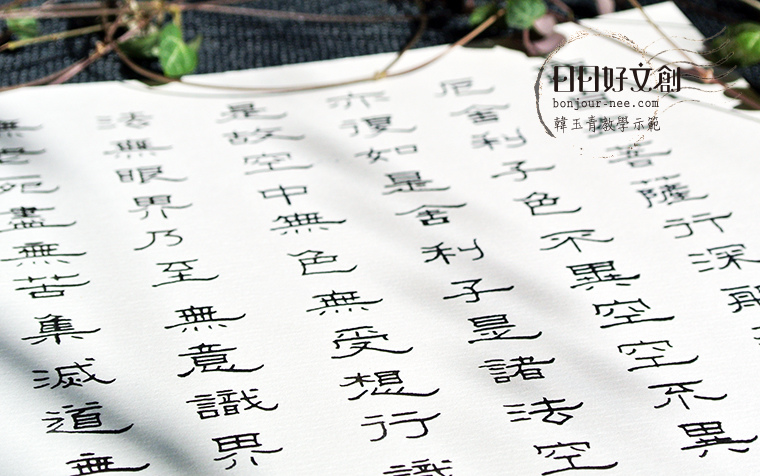 日日好文創
bonjour-nee.com
韓玉青教學示範
菩薩行深般
厄舍利子色不異空空不異
亦復如是舍利子是諸法空
是故空中無色無受想行識
法無眼界乃至無意識界
無老死盡無苦集滅道無